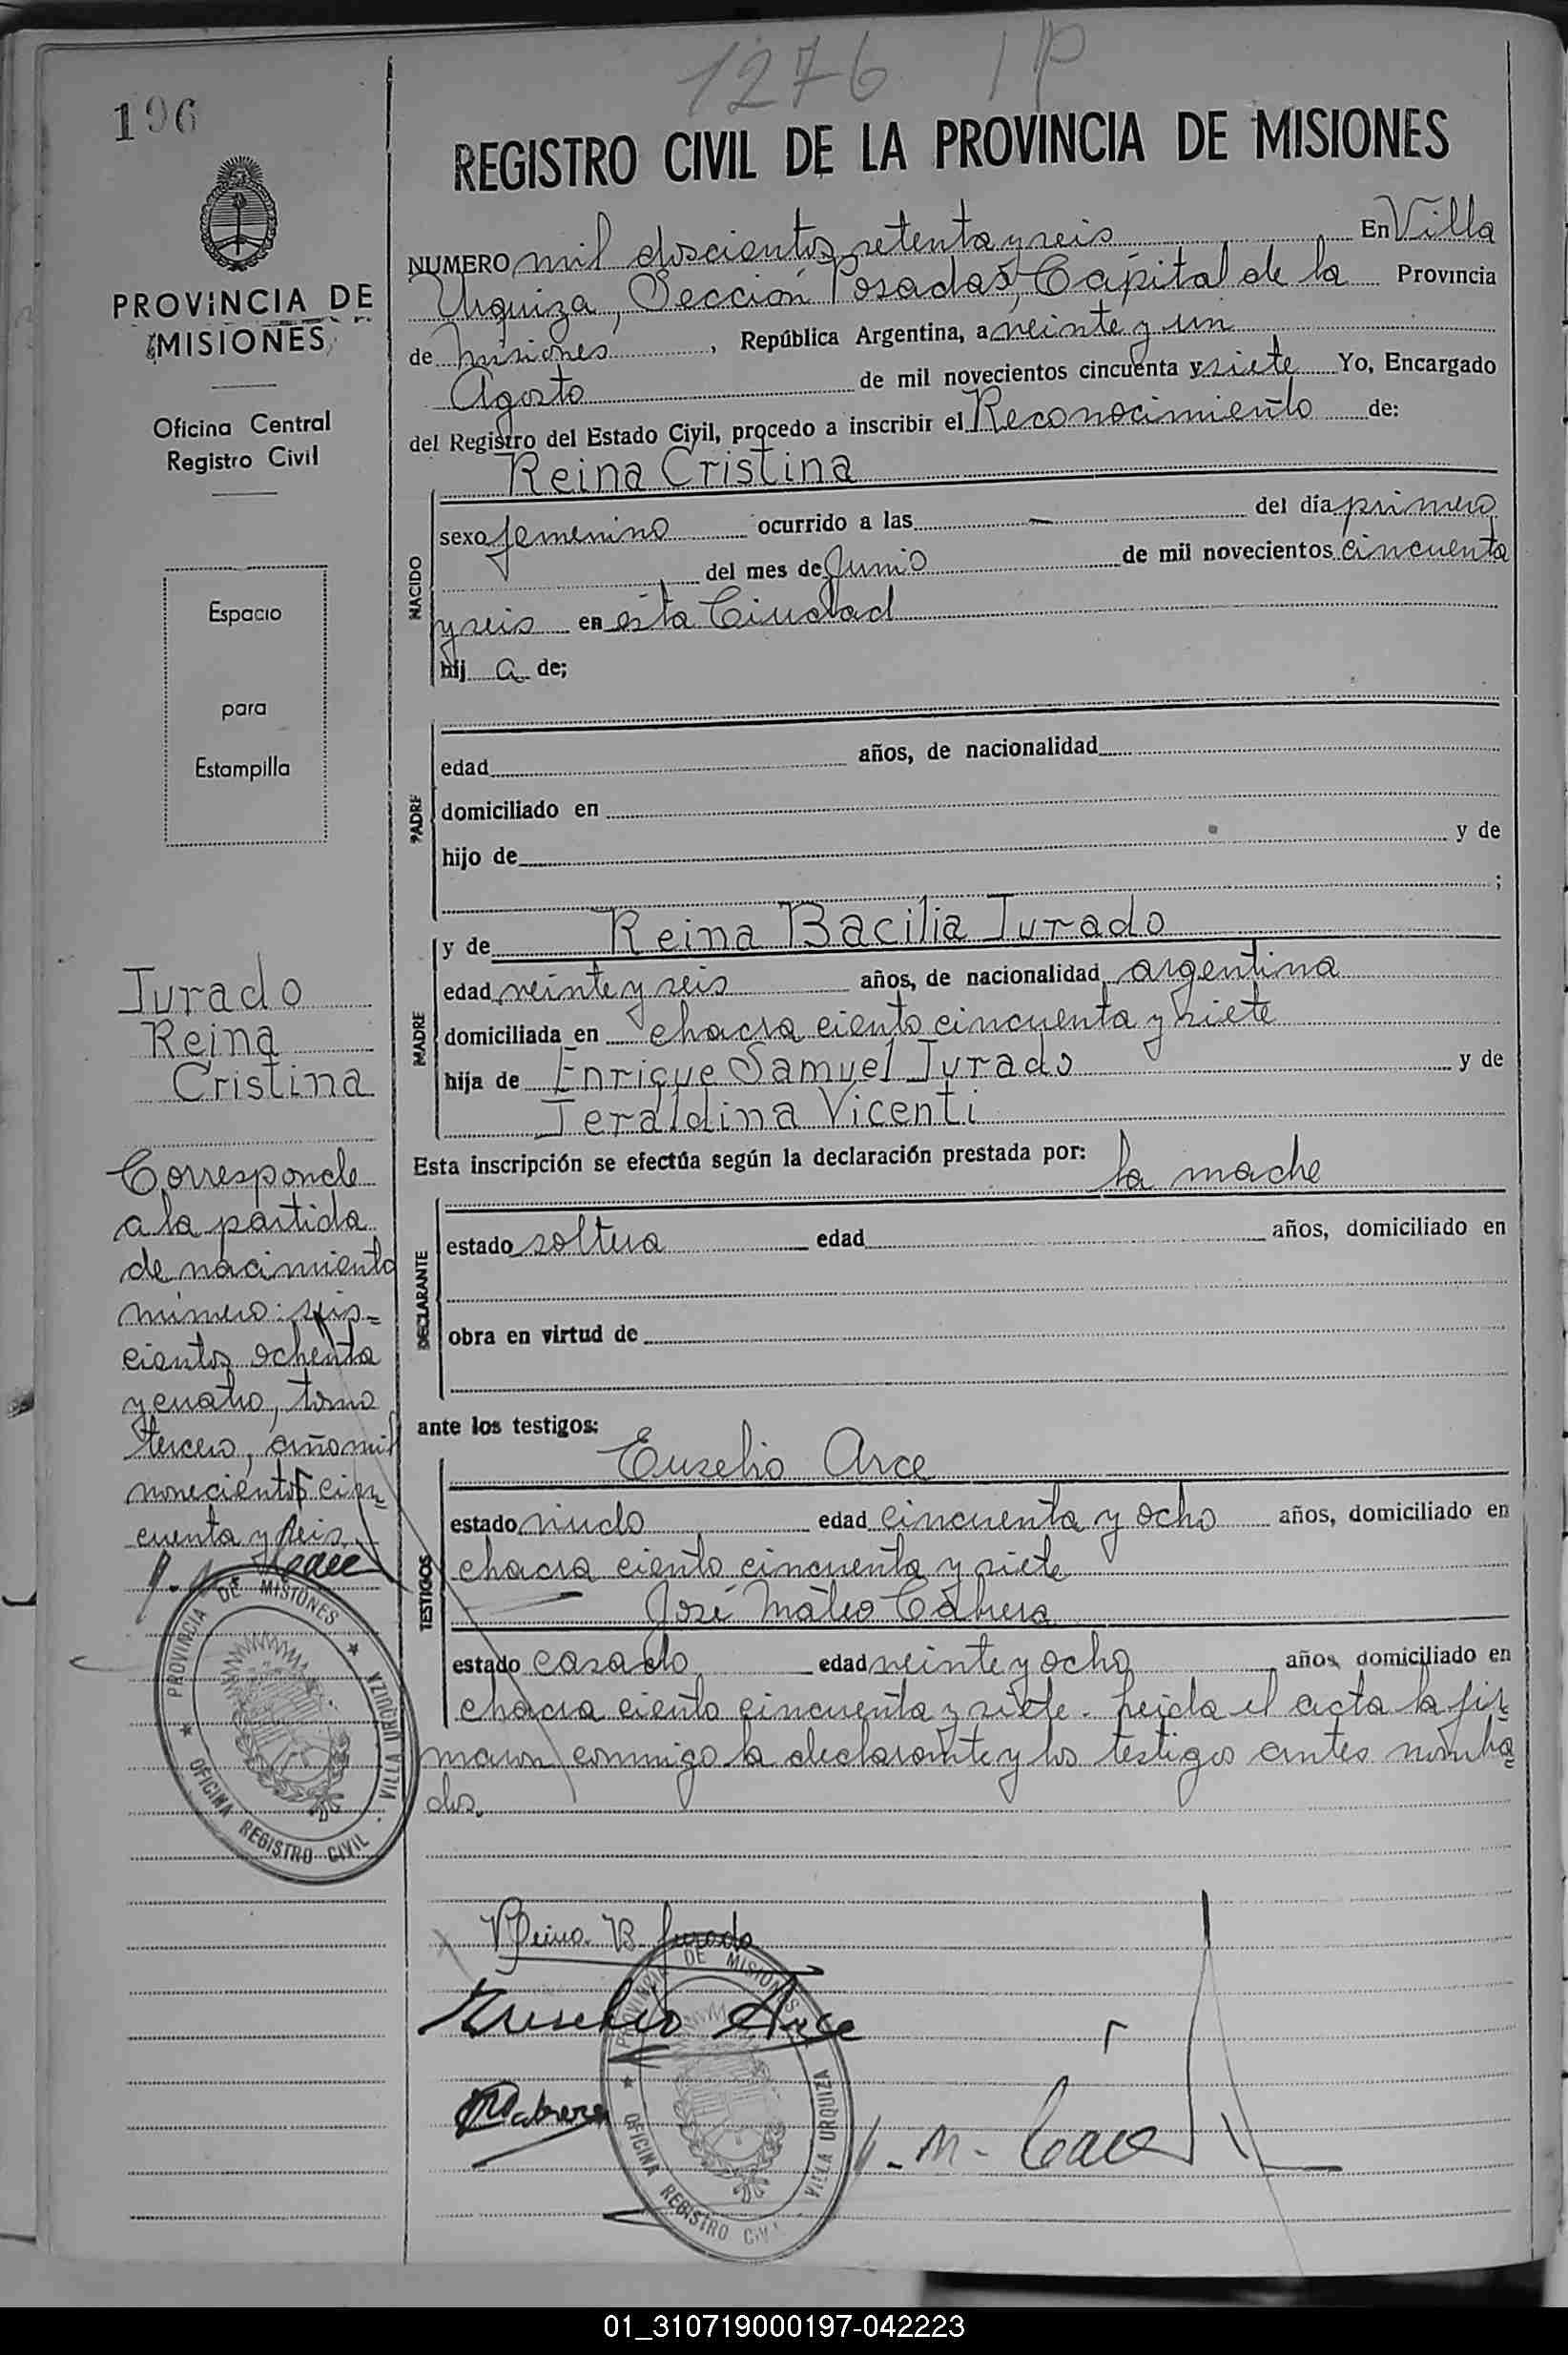 1276 1P
196
REGISTRO CIVIL DE LA PROVINCIA DE MISIONES
PROVINCIA DE
MISIONES
Oficina Central
Registro Civil
Espacio
para
Estampilla
NUMERO mil doscientos setenta y seis En Villa
Urquiza, Sección Posadas, Capital de la Provincia
de Misiones, República Argentina, a veinte y un
Agosto de mil novecientos cincuenta y siete Yo, Encargado
del Registro del Estado Civil, procedo a inscribir el Reconocimiento de:
Reina Cristina
NACIDO
sexo femenino ocurrido a las — del día primero
del mes de Junio de mil novecientos cincuenta
y seis en esta Ciudad
hij a de;
PADRE
edad años, de nacionalidad
domiciliado en
hijo de y de
;
MADRE
y de Reina Bacilia Jurado
edad veinte y seis años, de nacionalidad argentina
domiciliada en chacra ciento cincuenta y siete
hija de Enrique Samuel Jurado y de
Jeraldina Vicenti
Esta inscripción se efectúa según la declaración prestada por: la madre
DECLARANTE
estado soltera edad años, domiciliado en
obra en virtud de
ante los testigos:
TESTIGOS
Eusebio Arce
estado viudo edad cincuenta y ocho años, domiciliado en
chacra ciento cincuenta y siete
José Mateo Cabrera
estado casado edad veinte y ocho años, domiciliado en
chacra ciento cincuenta y siete. Leida el acta la fir-
maron conmigo la declarante y los testigos antes nombra-
dos.
Jurado
Reina
Cristina
Corresponde
a la partida
de nacimiento
número: seis-
cientos ochenta
y cuatro, tomo
tercero, año mil
novecientos cin-
cuenta y seis.
PROVINCIA DE MISIONES
OFICINA REGISTRO CIVIL - VILLA URQUIZA
Reina B. Jurado
Eusebio Arce
Cabrera
PROVINCIA DE MISIONES
OFICINA REGISTRO CIVIL VILLA URQUIZA
01_310719000197-042223